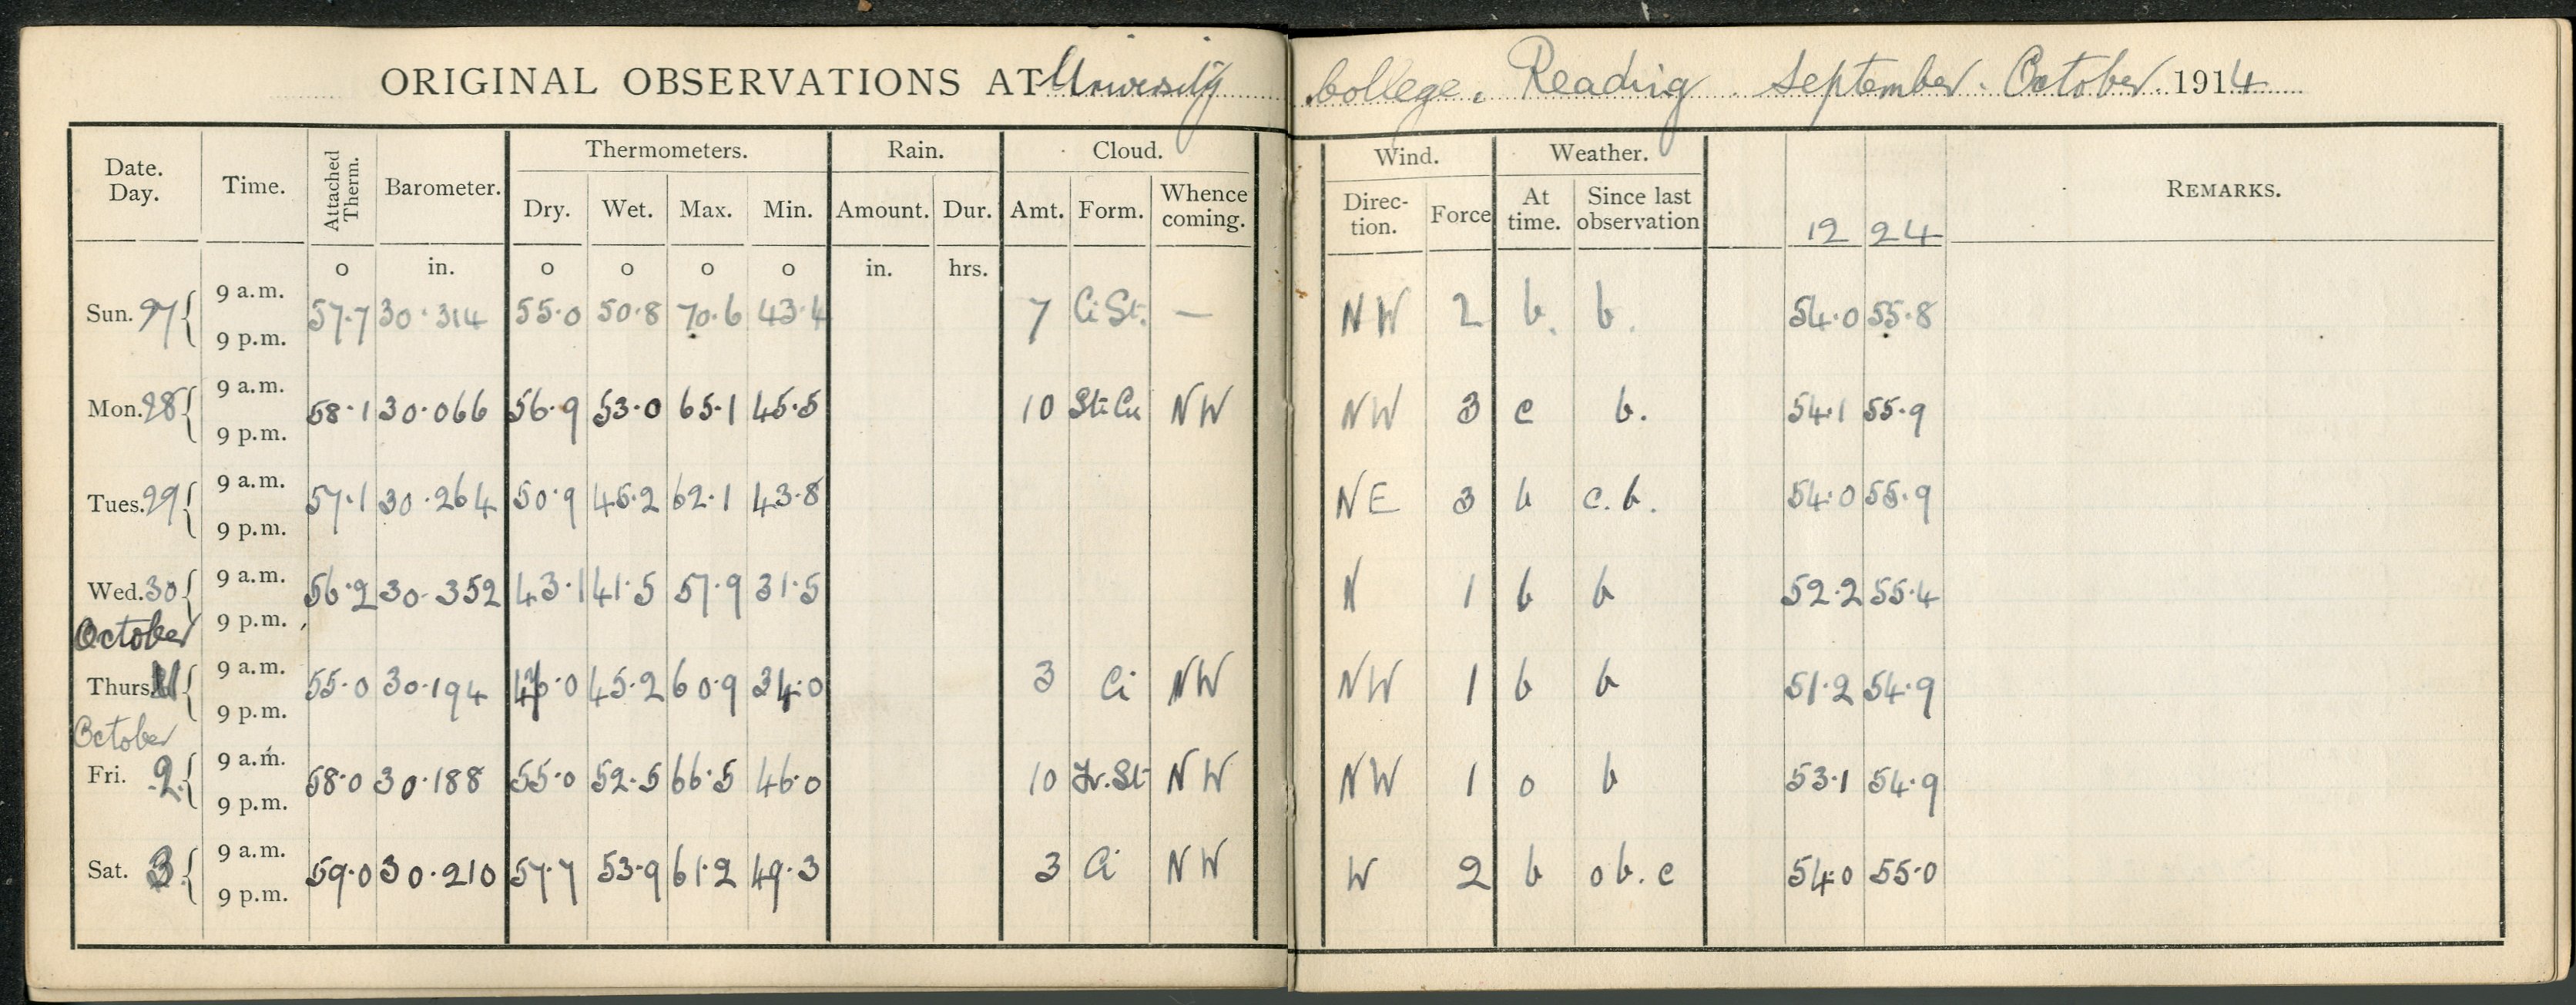 ORIGINAL OBSERVATIONS AT University College, Reading. September. October. 1914
Date. Day. Time. Attached Therm. Barometer. Thermometers. Rain. Cloud. Wind. Weather. REMARKS.
Dry. Wet. Max. Min. Amount. Dur. Amt. Form. Whence coming. Direc-tion. Force At time. Since last observation 12 24
o in. o o o o in. hrs.
Sun. 27 9 a.m. 57.7 30.314 55.0 50.8 70.6 43.4 7 Ci St. — NW 2 b. b. 54.0 55.8
9 p.m.
Mon. 28 9 a.m. 58.1 30.066 56.9 53.0 65.1 45.5 10 St Cu NW NW 3 c b. 54.1 55.9
9 p.m.
Tues. 29 9 a.m. 57.1 30.264 50.9 45.2 62.1 43.8 NE 3 b c.b. 54.0 55.9
9 p.m.
Wed. 30 9 a.m. 56.2 30.352 43.1 41.5 57.9 31.5 N 1 b b 52.2 55.4
October 9 p.m.
Thurs. 9 a.m. 55.0 30.194 45.2 60.9 34.0 3 Ci NW NW 1 b b 51.2 54.9
9 p.m.
October
Fri. 2. 9 a.m. 58.0 30.188 55.0 52.5 66.5 46.0 10 Fr.St NW NW 1 o b 53.1 54.9
9 p.m.
Sat. 3. 9 a.m. 59.0 30.210 57.7 53.9 61.2 49.3 3 Ci NW W 2 b ob.c 54.0 55.0
9 p.m.